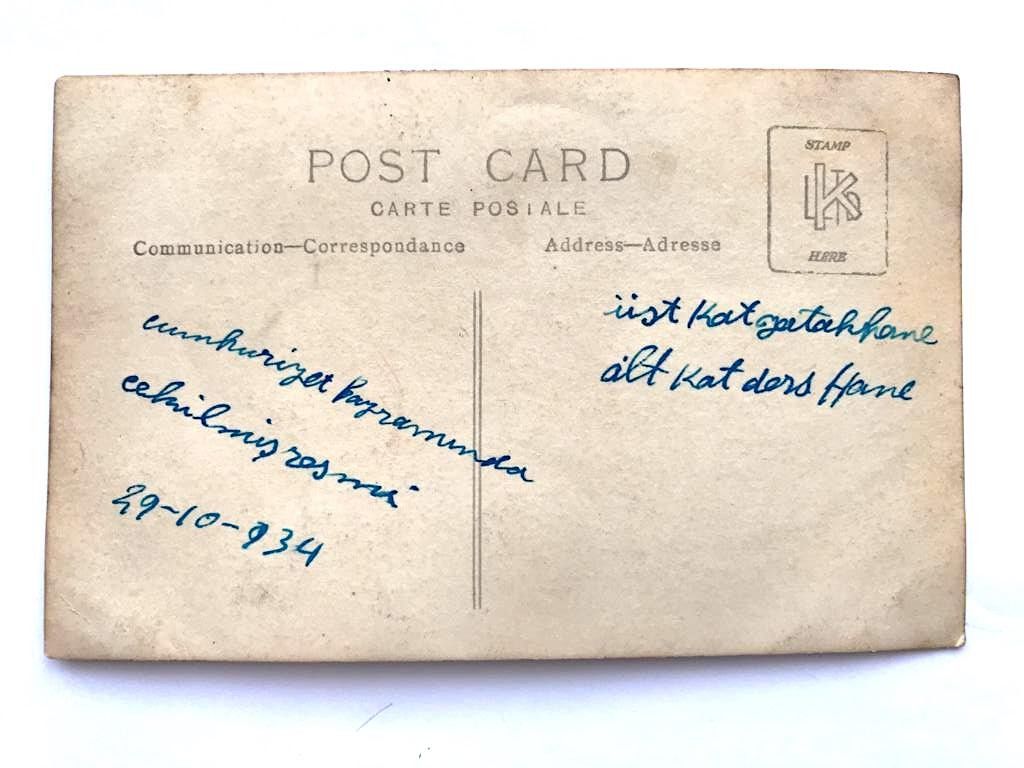 POST CARD
CARTE POSTALE
Communication—Correspondance
Address—Adresse
STAMP
HERE
cumhuriyet bayramında
cekilmiş resmi
29-10-934
üst Kat yatakhane
alt Kat ders Hane